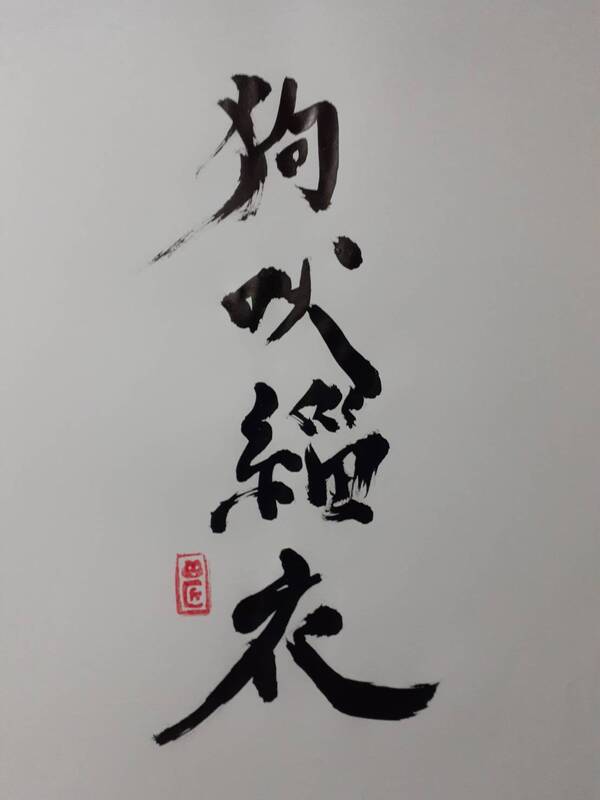 狗吠緇衣